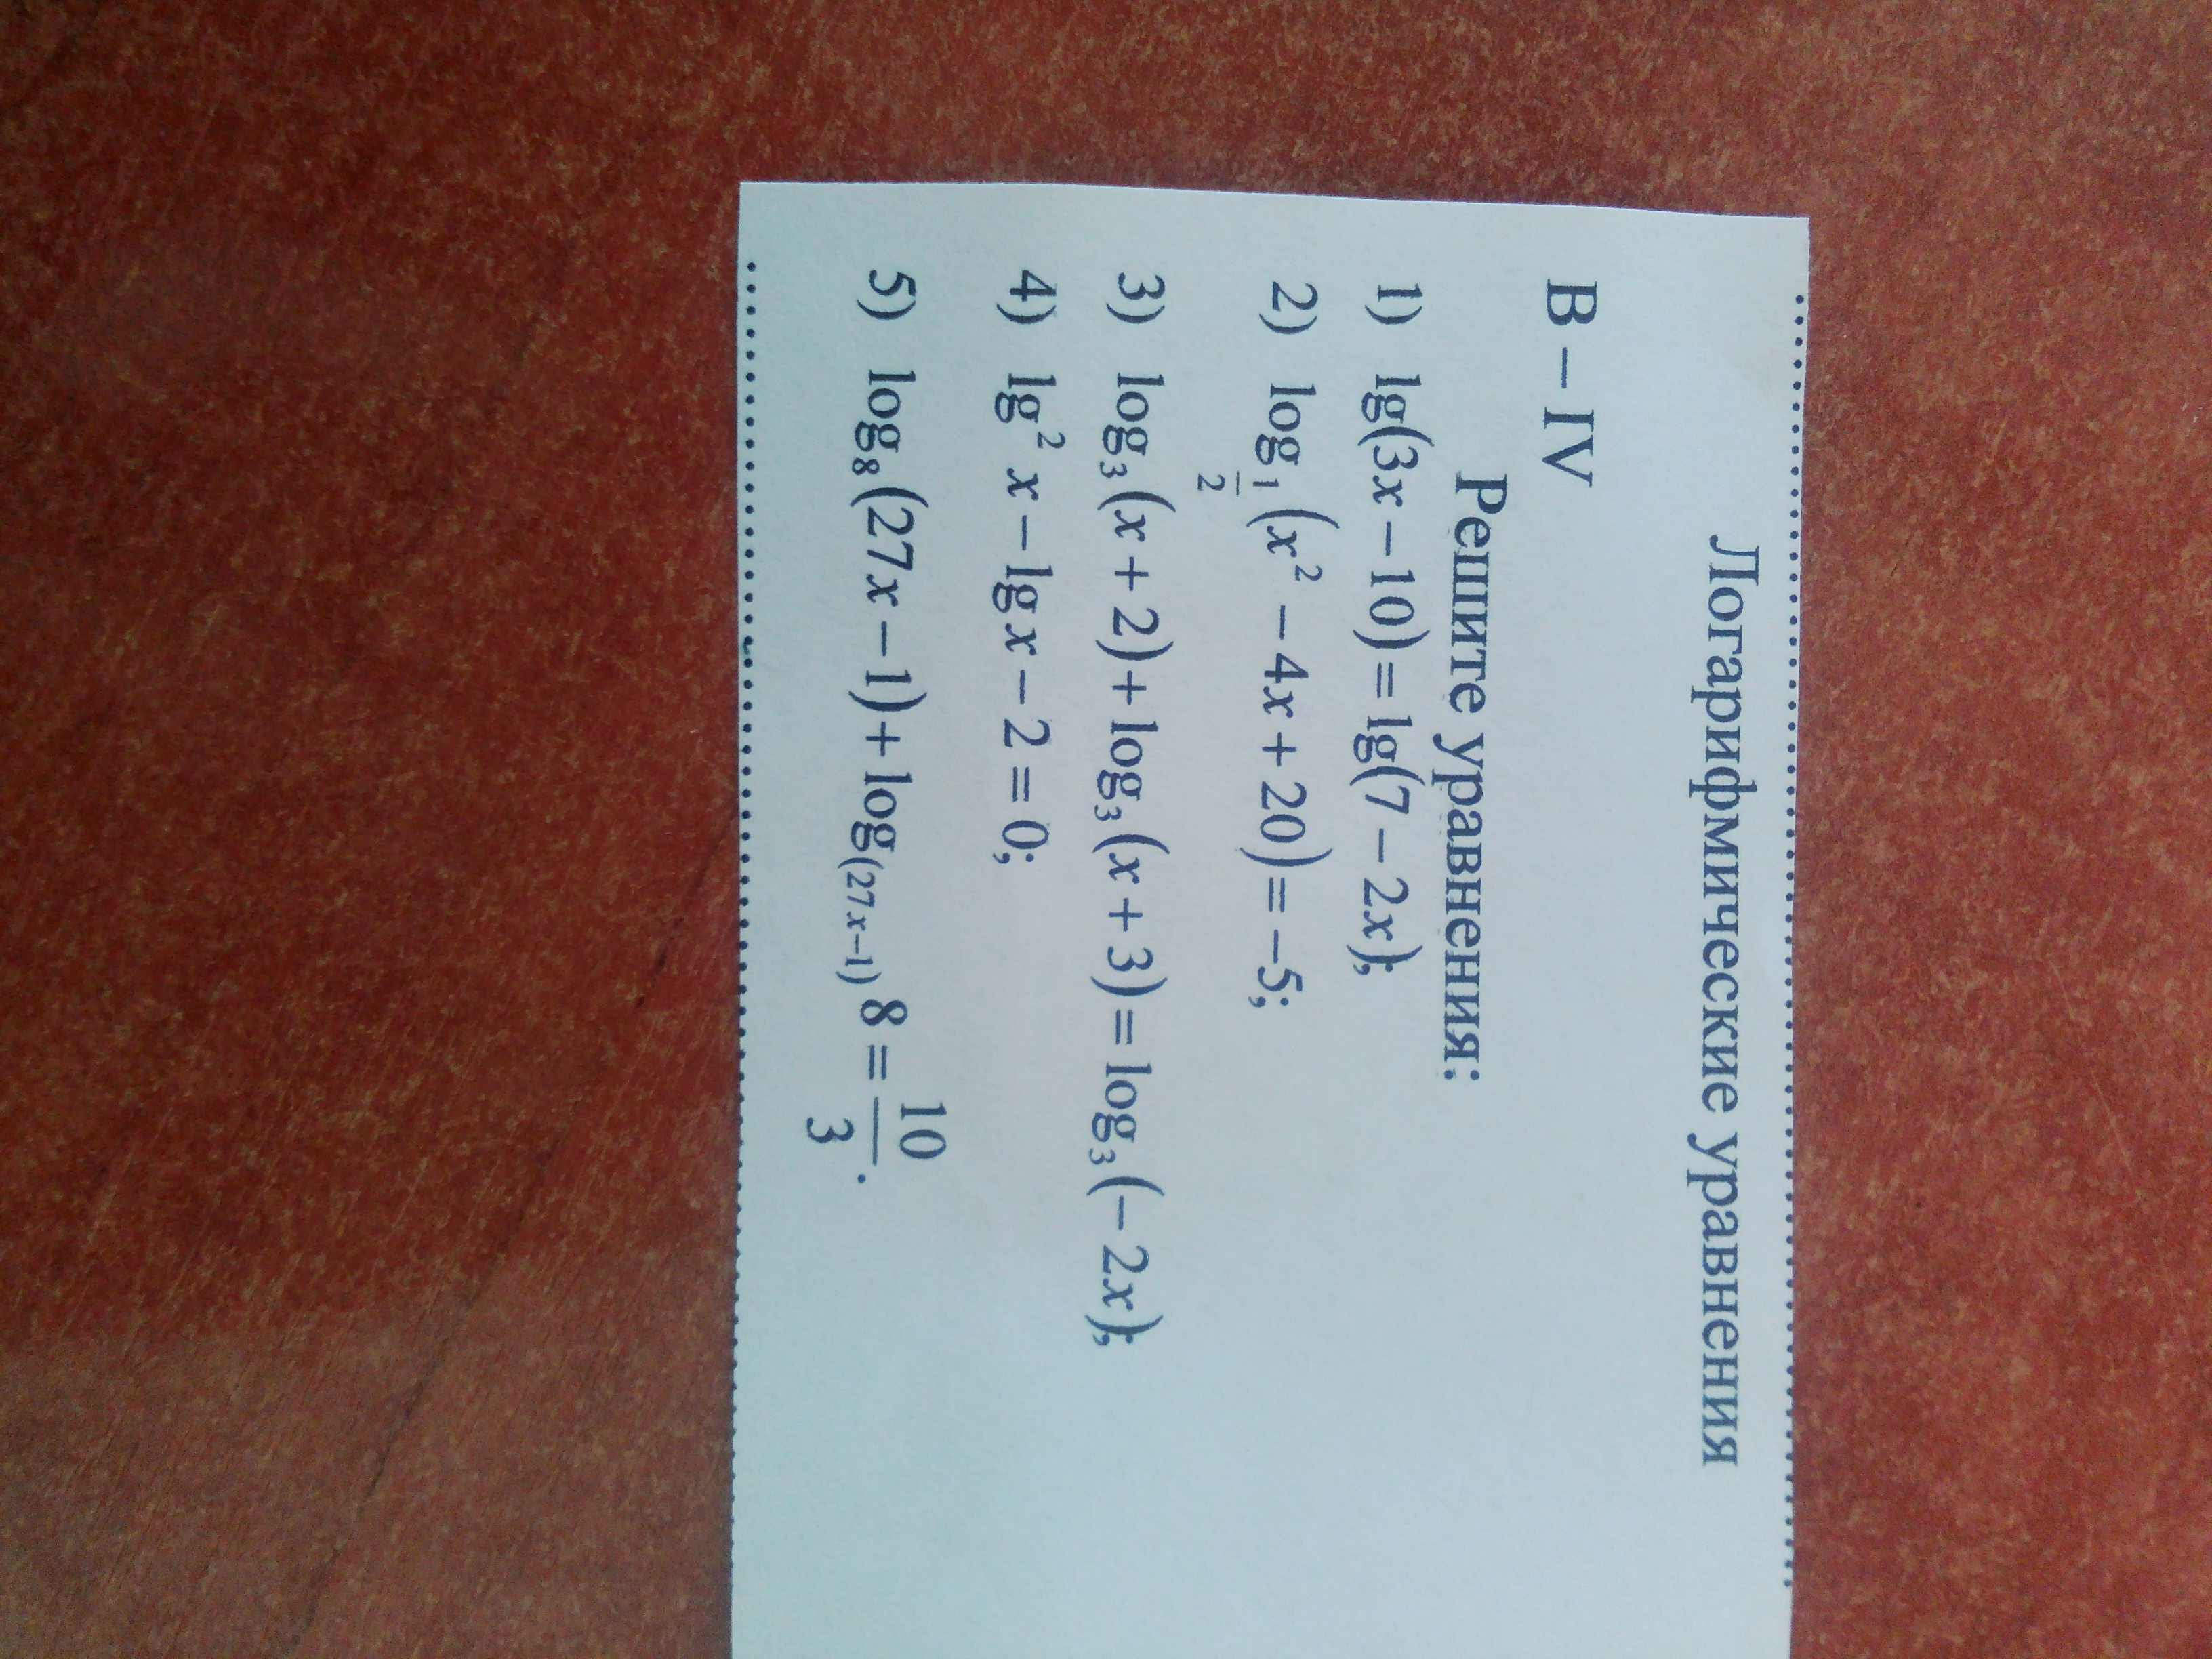 Логарифмические уравнения
В – IV
Решите уравнения:
1) lg(3x − 10) = lg(7 − 2x);
2) log_{1/2}(x² − 4x + 20) = −5;
3) log₃(x + 2) + log₃(x + 3) = log₃(−2x);
4) lg² x − lg x − 2 = 0;
5) log₈(27x − 1) + log_{(27x−1)} 8 = 10/3.